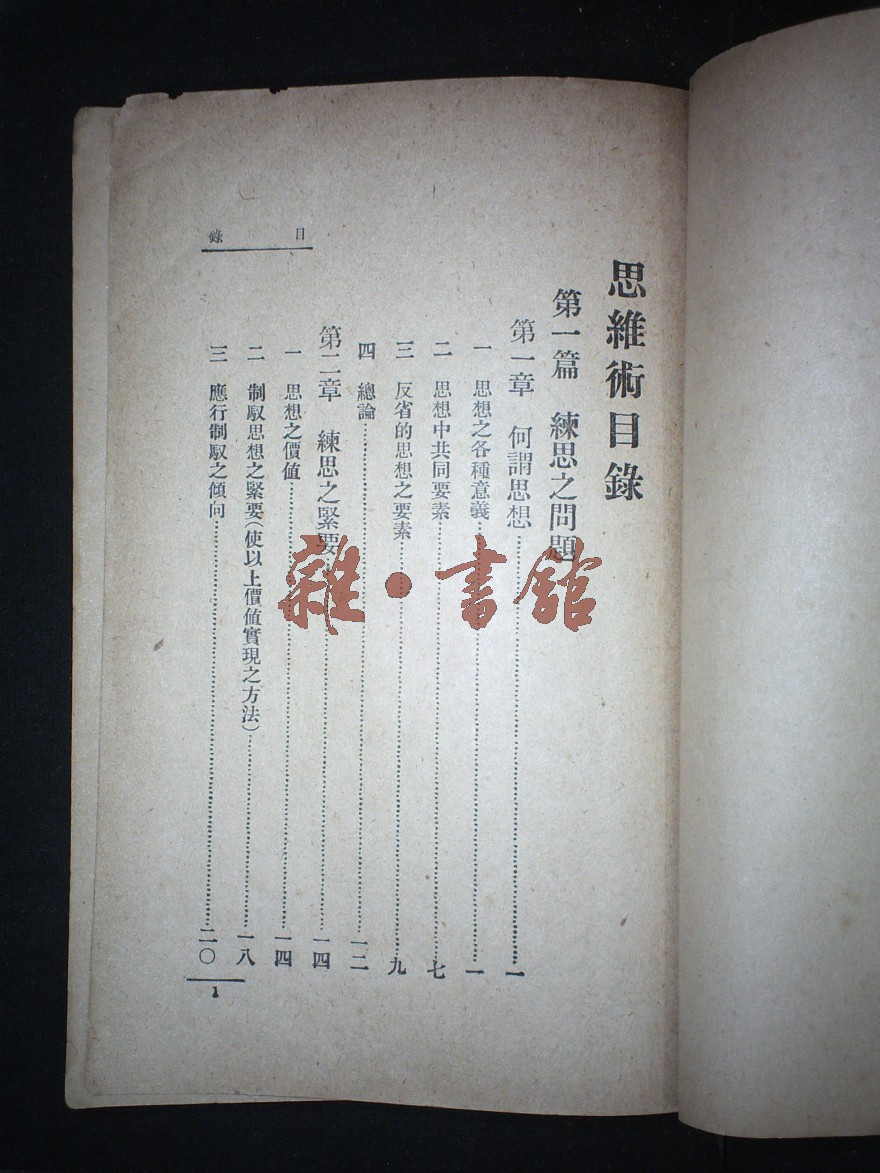 思維術目錄
第一篇 練思之問題
第一章 何謂思想……一
一 思想之各種意義……一
二 思想中共同要素……七
三 反省的思想之要素……九
四 總論……一二
第二章 練思之緊要……一四
一 思想之價值……一四
二 制馭思想之緊要(使以上價値實現之方法)……一八
三 應行制馭之傾向……二〇
目錄
1
雜·書館